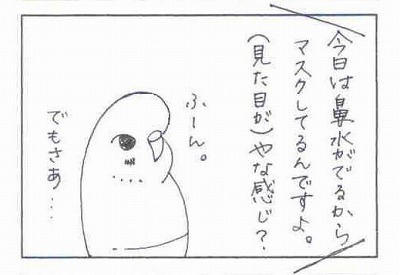 今日は鼻水がでるから
マスクしてるんですよ。
(見た目が)やな感じ?
ふーん。
でもさあ…